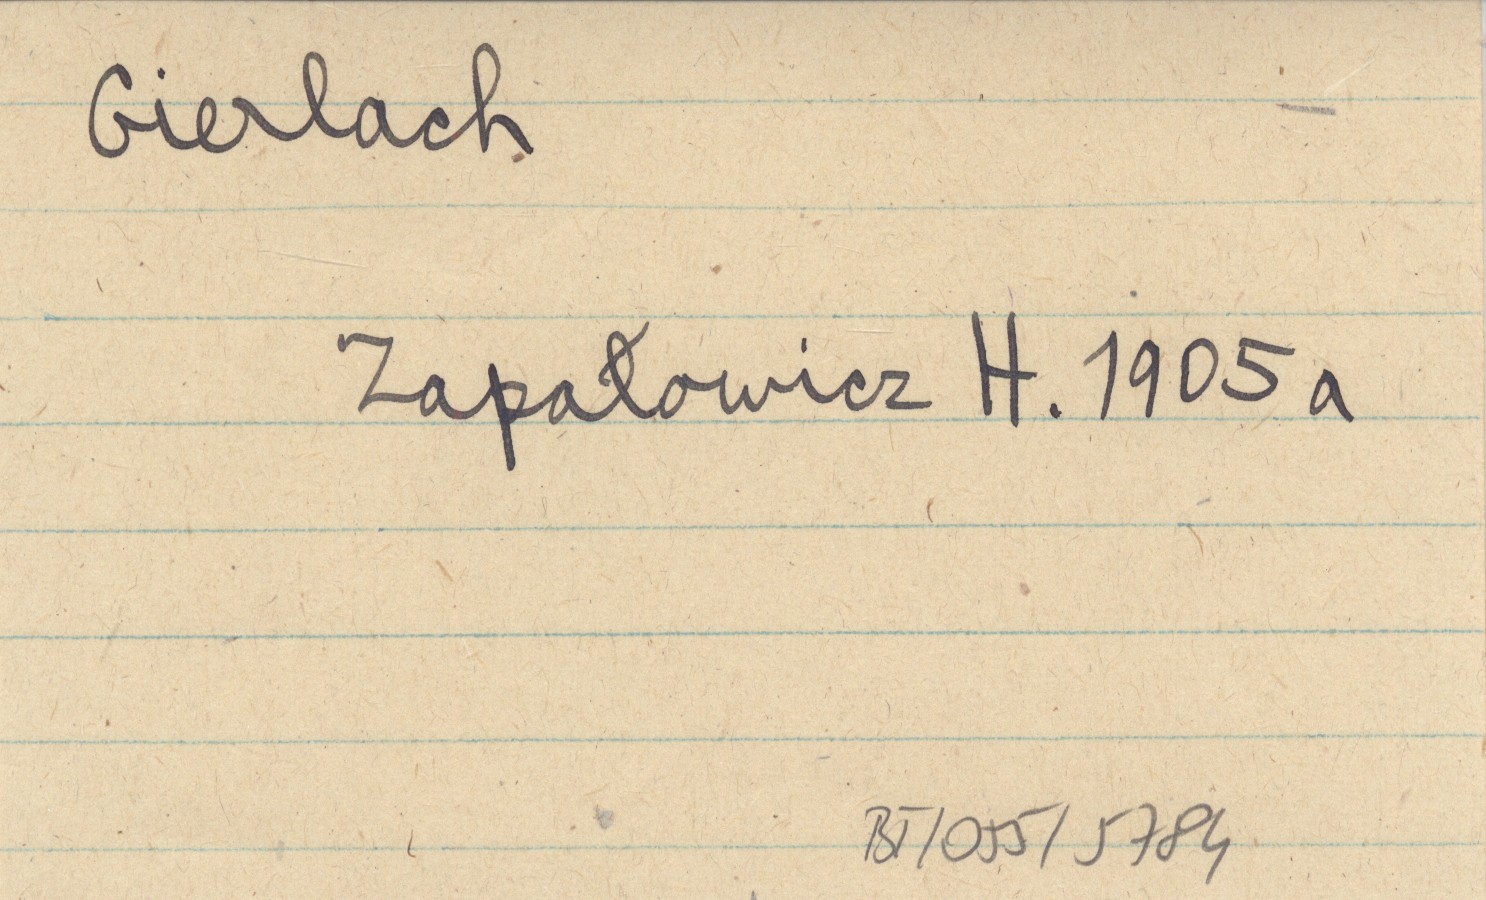 Gierlach
Zapałowicz H. 1905a
BT/055/5784